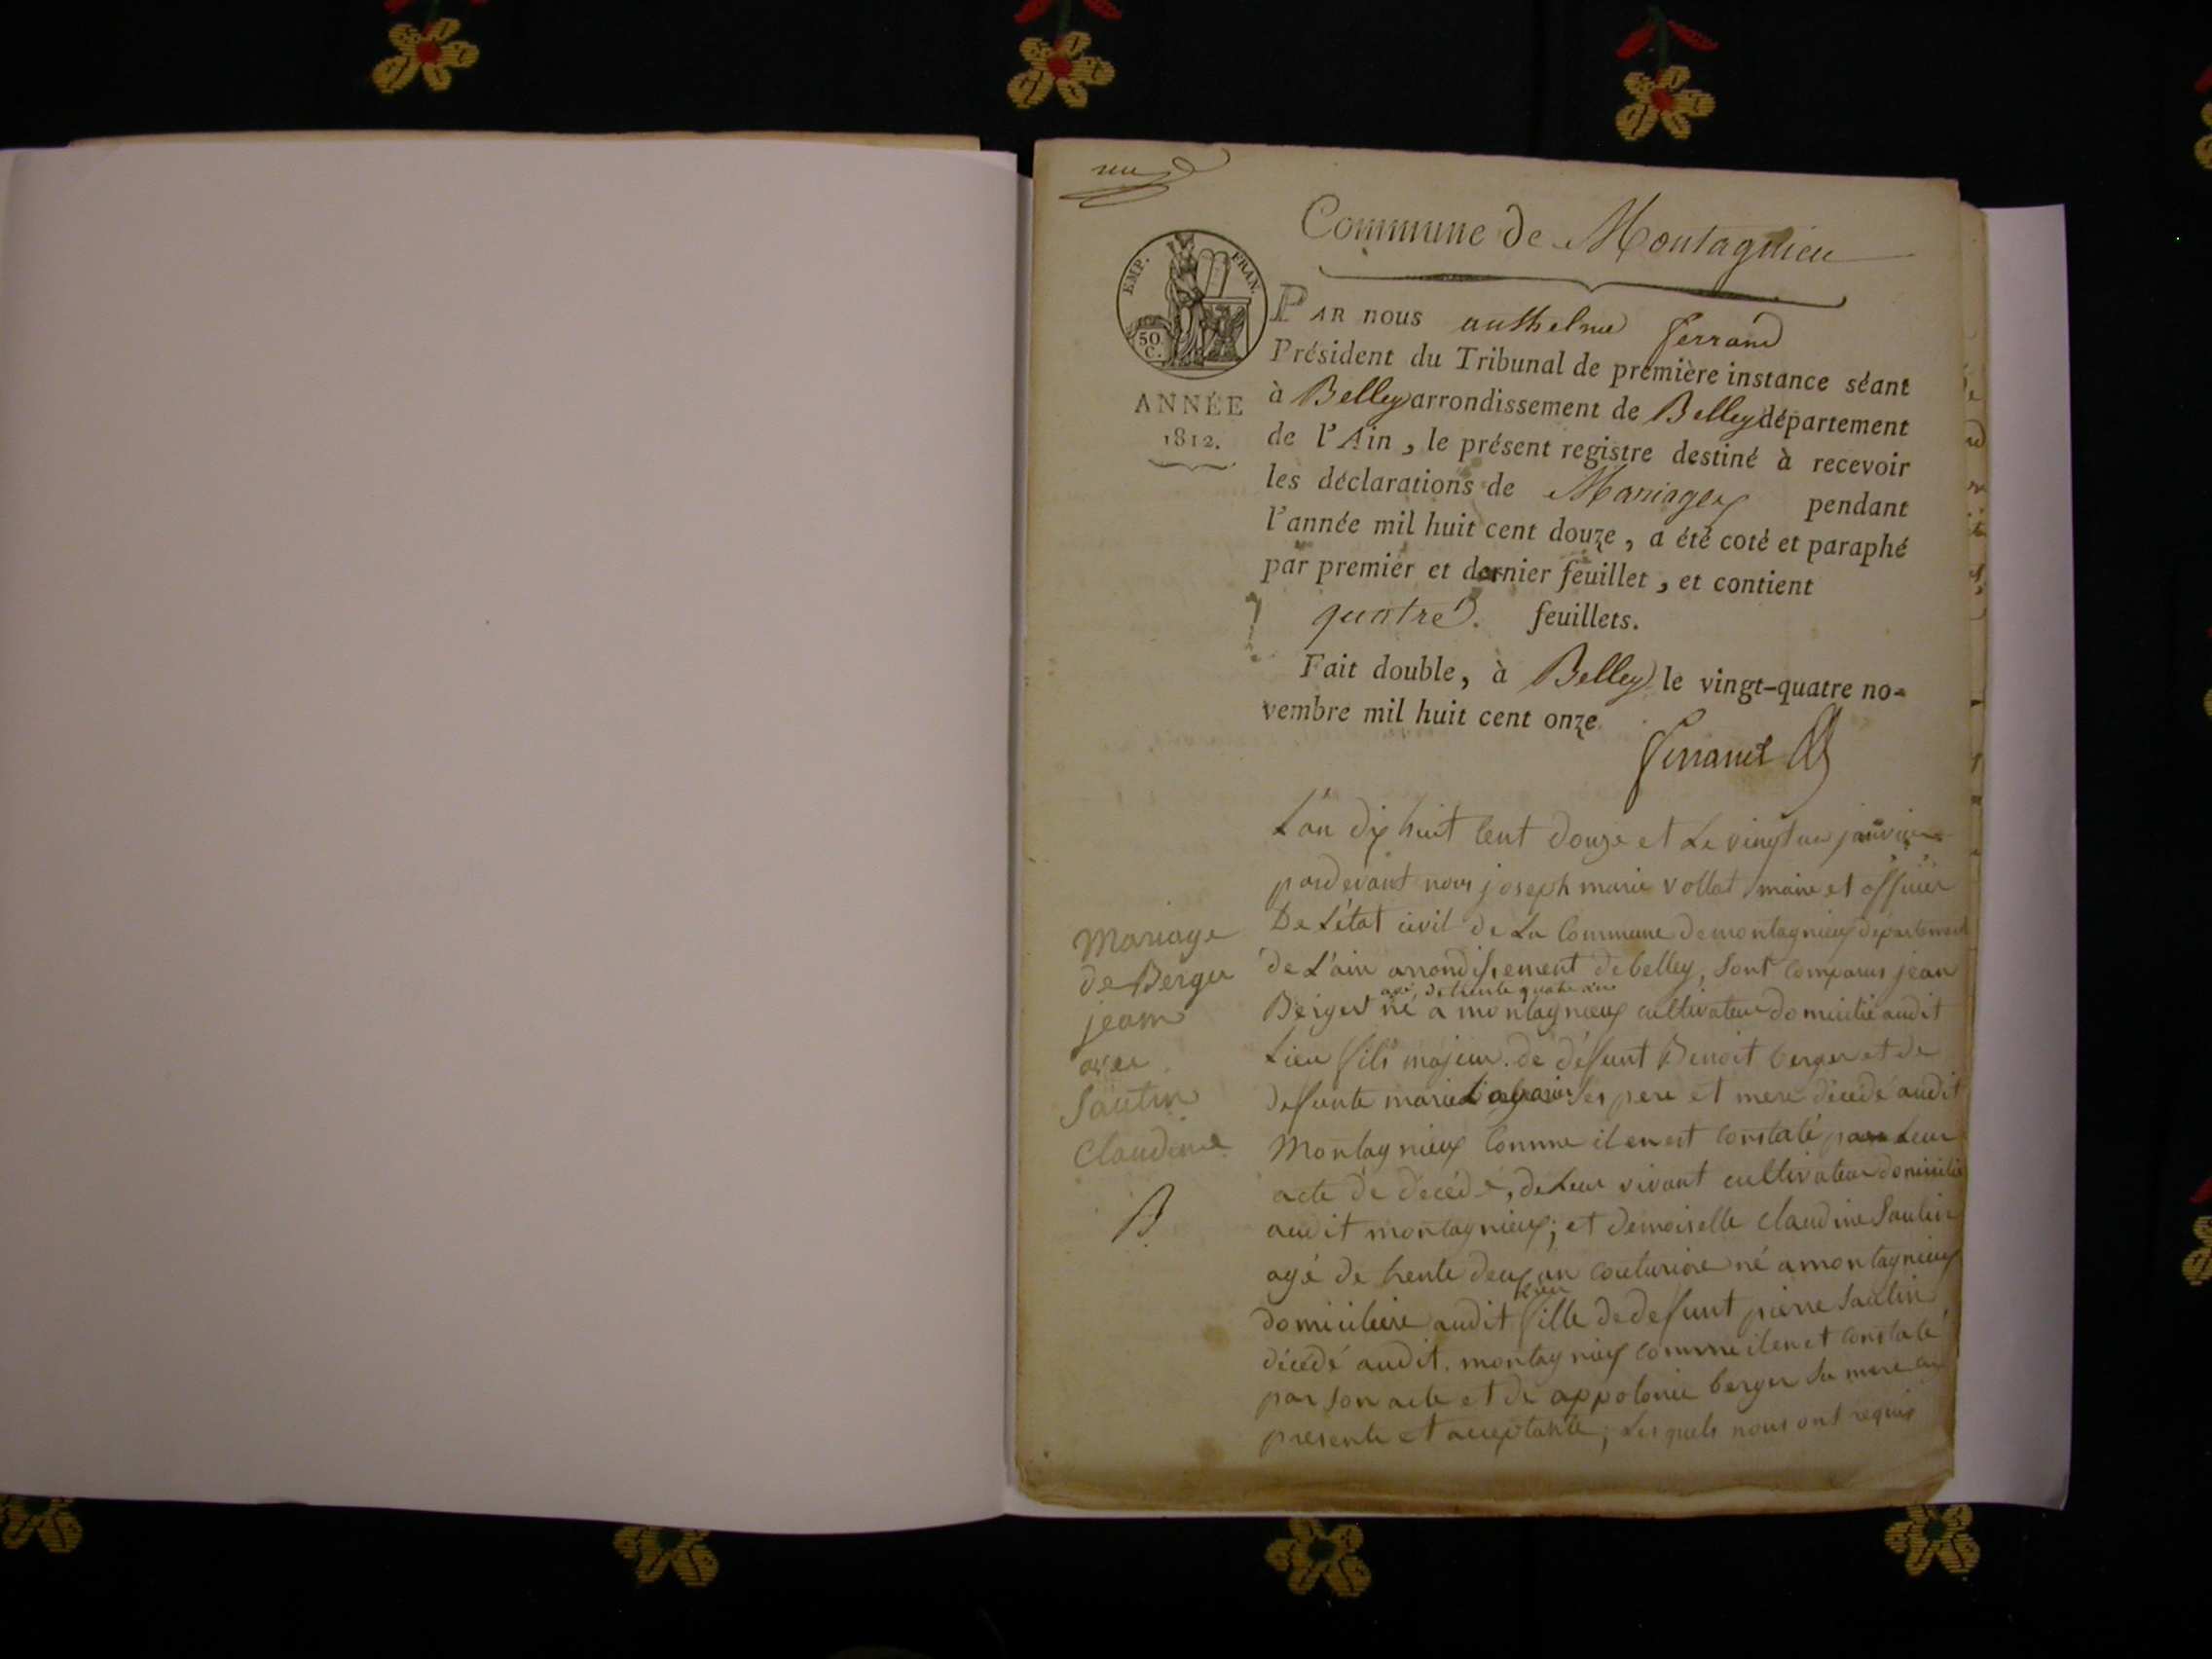 Commune de Montagnieu
EMP. FRAN.
50.
C.
ANNÉE
1812.
PAR nous anthelme ferrand
Président du Tribunal de première instance séant
à Belley arrondissement de Belley département
de l'Ain, le présent registre destiné à recevoir
les déclarations de Mariages pendant
l'année mil huit cent douze, a été coté et paraphé
par premier et dernier feuillet, et contient
quatre. feuillets.
Fait double, à Belley le vingt-quatre no-
vembre mil huit cent onze
ferrand
Mariage
de Berger
jean
avec
Sautin
Claudine
B
L'an dix huit Cent Douze et Le vingt un janvier
pardevant nous joseph marie vollat maire et officier
De L'état civil de La Commune de montagnieux département
de L'ain arrondissement de belley, sont comparus jean
agé de trente quatre ans
Berger né a montagnieux cultivateur domicilié audit
Lieu fils majeur de défunt Benoit berger et de
defunte marie ses pere et mere décédé audit
Montagnieux Comme il en est constaté par Leur
acte de décédé, de Leur vivant cultivateur domicilié
audit montagnieux; et demoiselle claudine Sautin
agé de trente deux an couturiere né a montagnieux
lieu
domiciliere audit fille de defunt pierre Sautin
décédé audit montagnieux comme il en et constaté
par son acte et de appolonie berger sa mere ci
presente et acceptante; Les quels nous ont requis